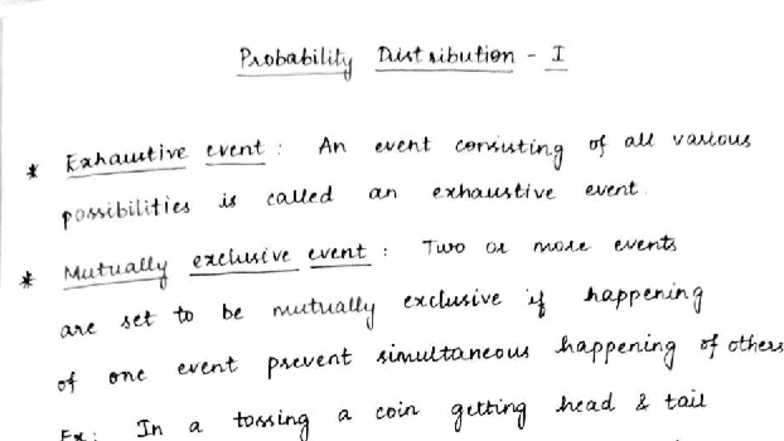 Probability Distribution - I
* Exhaustive event : An event consisting of all various
possibilities is called an exhaustive event.
* Mutually exclusive event : Two or more events
are set to be mutually exclusive if happening
of one event prevent simultaneous happening of others
Ex: In a tossing a coin getting head & tail